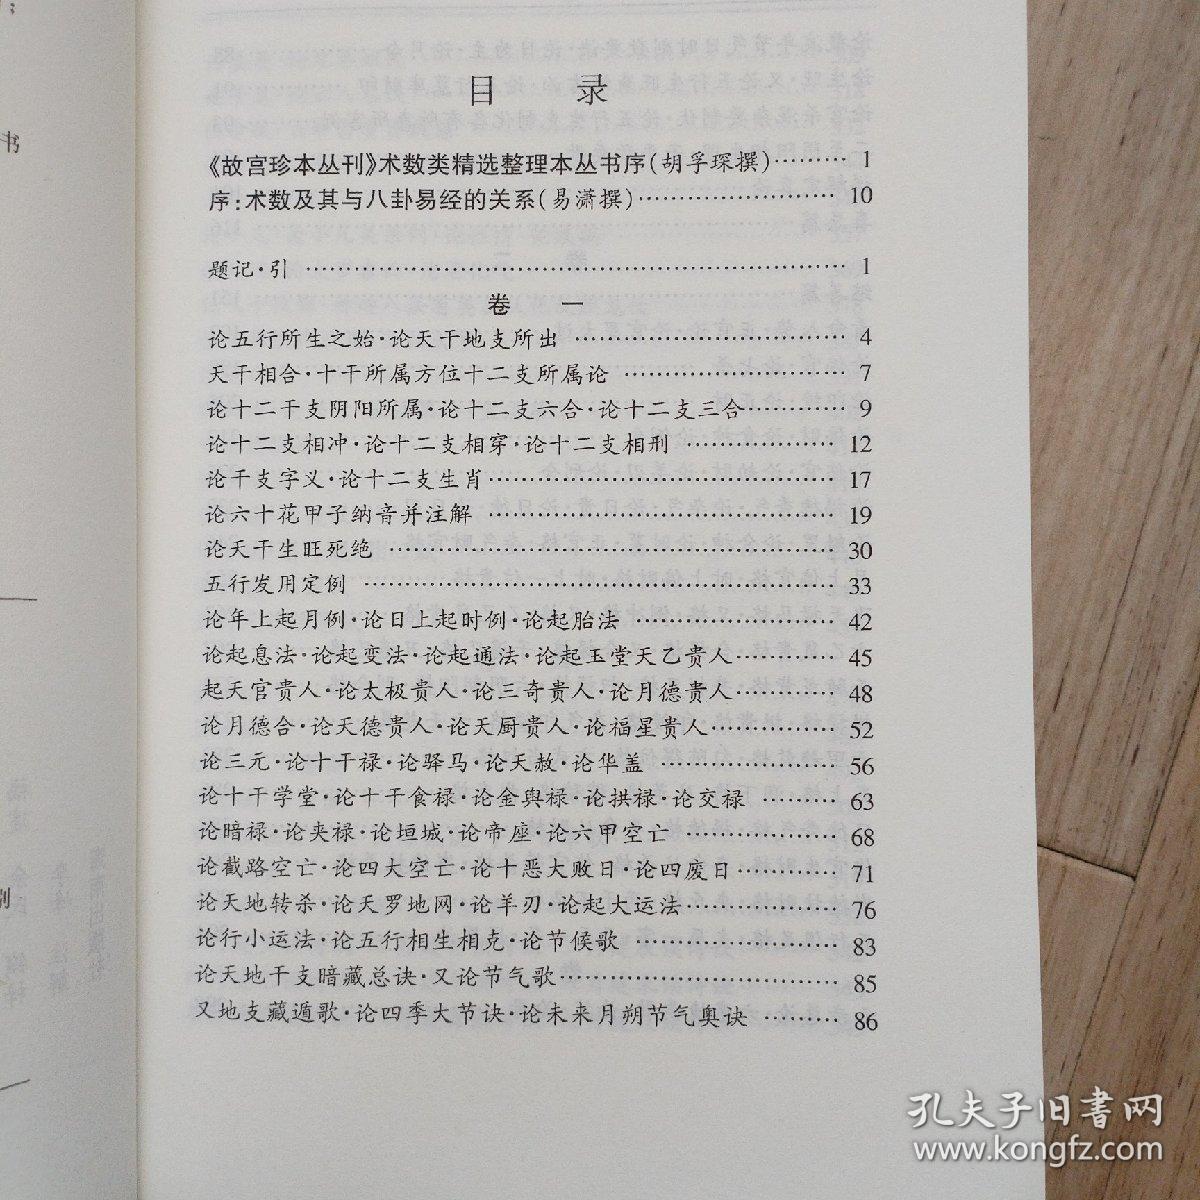 书
目 录
《故宫珍本丛刊》术数类精选整理本丛书序(胡孚琛撰)………1
序:术数及其与八卦易经的关系(易潇撰)………10
题记·引………1
卷 一
论五行所生之始·论天干地支所出………4
天干相合·十干所属方位十二支所属论………7
论十二干支阴阳所属·论十二支六合·论十二支三合………9
论十二支相冲·论十二支相穿·论十二支相刑………12
论干支字义·论十二支生肖………17
论六十花甲子纳音并注解………19
论天干生旺死绝………30
五行发用定例………33
论年上起月例·论日上起时例·论起胎法………42
论起息法·论起变法·论起通法·论起玉堂天乙贵人………45
起天官贵人·论太极贵人·论三奇贵人·论月德贵人………48
论月德合·论天德贵人·论天厨贵人·论福星贵人………52
论三元·论十干禄·论驿马·论天赦·论华盖………56
论十干学堂·论十干食禄·论金舆禄·论拱禄·论交禄………63
论暗禄·论夹禄·论垣城·论帝座·论六甲空亡………68
论截路空亡·论四大空亡·论十恶大败日·论四废日………71
论天地转杀·论天罗地网·论羊刃·论起大运法………76
论行小运法·论五行相生相克·论节候歌………83
论天地干支暗藏总诀·又论节气歌………85
又地支藏遁歌·论四季大节诀·论未来月朔节气奥诀………86
孔夫子旧书网
www.kongfz.com